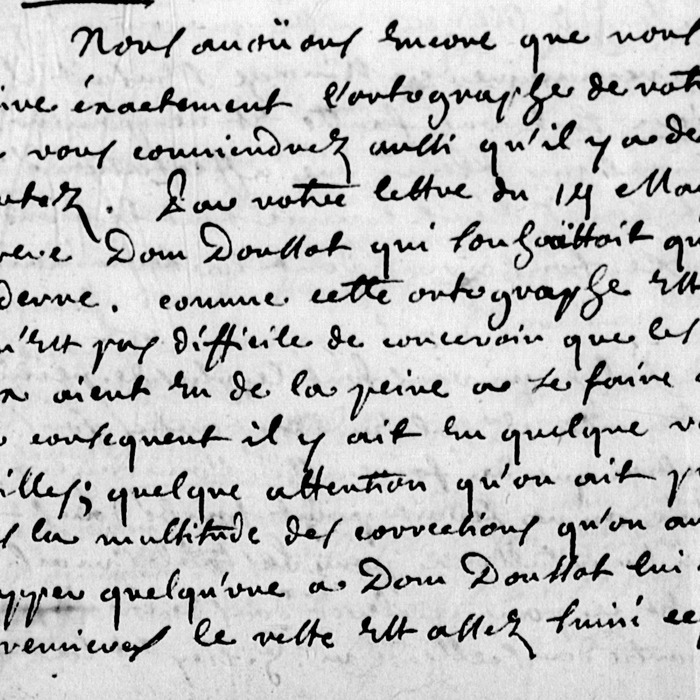 Nous auoüons encore que vous
exactement l'ortographe de votr
vous conuiendrez aussi qu'il y a de
. Par votre lettre du 14 Ma
Dom Doussot qui souhaittoit qu
derne. comme cette ortographe est
n'est pas difficile de conceuoir que les
aient eu de la peine a se faire
consequent il y ait eu quelque
illes; quelque attention qu'on ait p
s la multitude des corrections qu'on au
quelqu'vne a Dom Doussot lui
premieres le reste est assez suiui